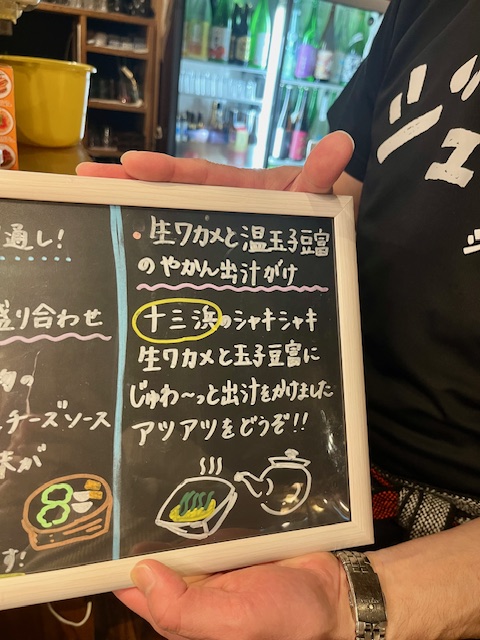 通し!
盛り合わせ
の
チーズソース
味が
す!
・生ワカメと温玉子豆富
のやかん出汁がけ
十三浜のシャキシャキ
生ワカメと玉子豆富に
じゅわ〜っと出汁をかけました
アツアツをどうぞ!!